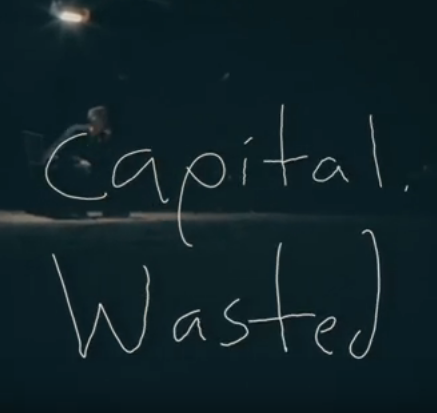 Capital.
Wasted